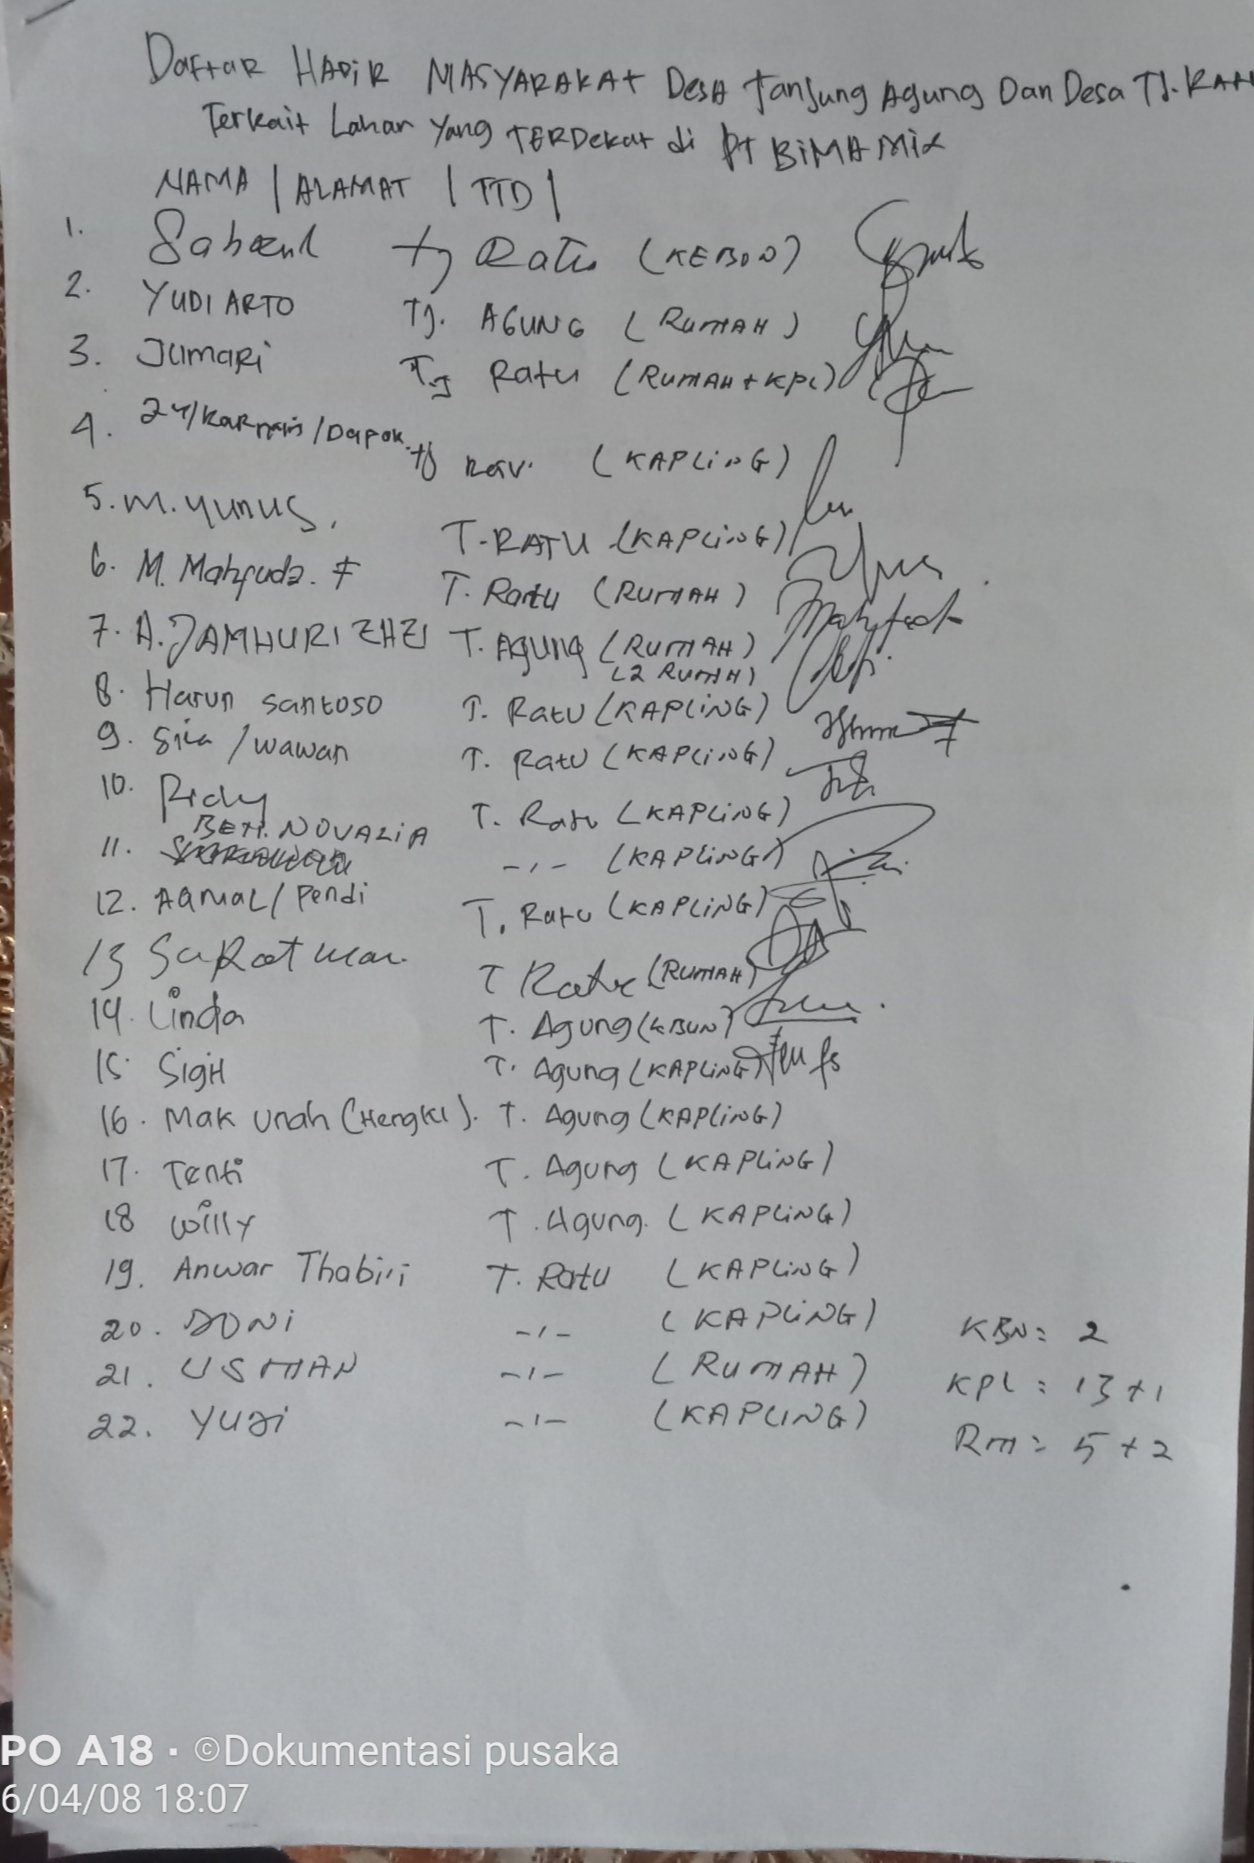 Daftar HADiR MASYARAKAt Desa Tanjung Agung Dan Desa TJ.
Terkait Lahan Yang TERDekat di PT BiMA Mix
NAMA | ALAMAT | TTD |
1. tj Ratu (KEBON)
2. YUDI ARTO TJ. AGUNG (RUMAH)
3. JUMARi Tj Ratu (RUMAH + KPL)
4. /Dapok tj (KAPLiNG)
5. M. YUNUS. T. RATU (KAPLiNG)
6. M. Mahfuda. F T. Ratu (RUMAH)
7. A. JAMHURI T. Agung (RUMAH)
(2 RUMAH)
8. Harun santoso T. Ratu (KAPLiNG)
9. /wawan T. Ratu (KAPLiNG)
10. Ricky T. Ratu (KAPLiNG)
11. NOVALiA -,- (KAPLiNG)
12. / Pendi T. Ratu (KAPLiNG)
13 T Ratu (RUMAH)
14. Linda T. Agung (KBUN)
15 Sigit T. Agung (KAPLiNG)
16. Mak Unah (Hengki). T. Agung (KAPLiNG)
17. Tenti T. Agung (KAPLiNG)
18 Willy T. Agung. (KAPLiNG)
19. Anwar Thabiri T. Ratu (KAPLiNG)
20. DONi -,- (KAPLiNG)
21. USMAN -,- (RUMAH)
22. -,- (KAPLING)
KBN = 2
KPL = 13 + 1
RM = 5 + 2
PO A18 · ©Dokumentasi pusaka
6/04/08 18:07